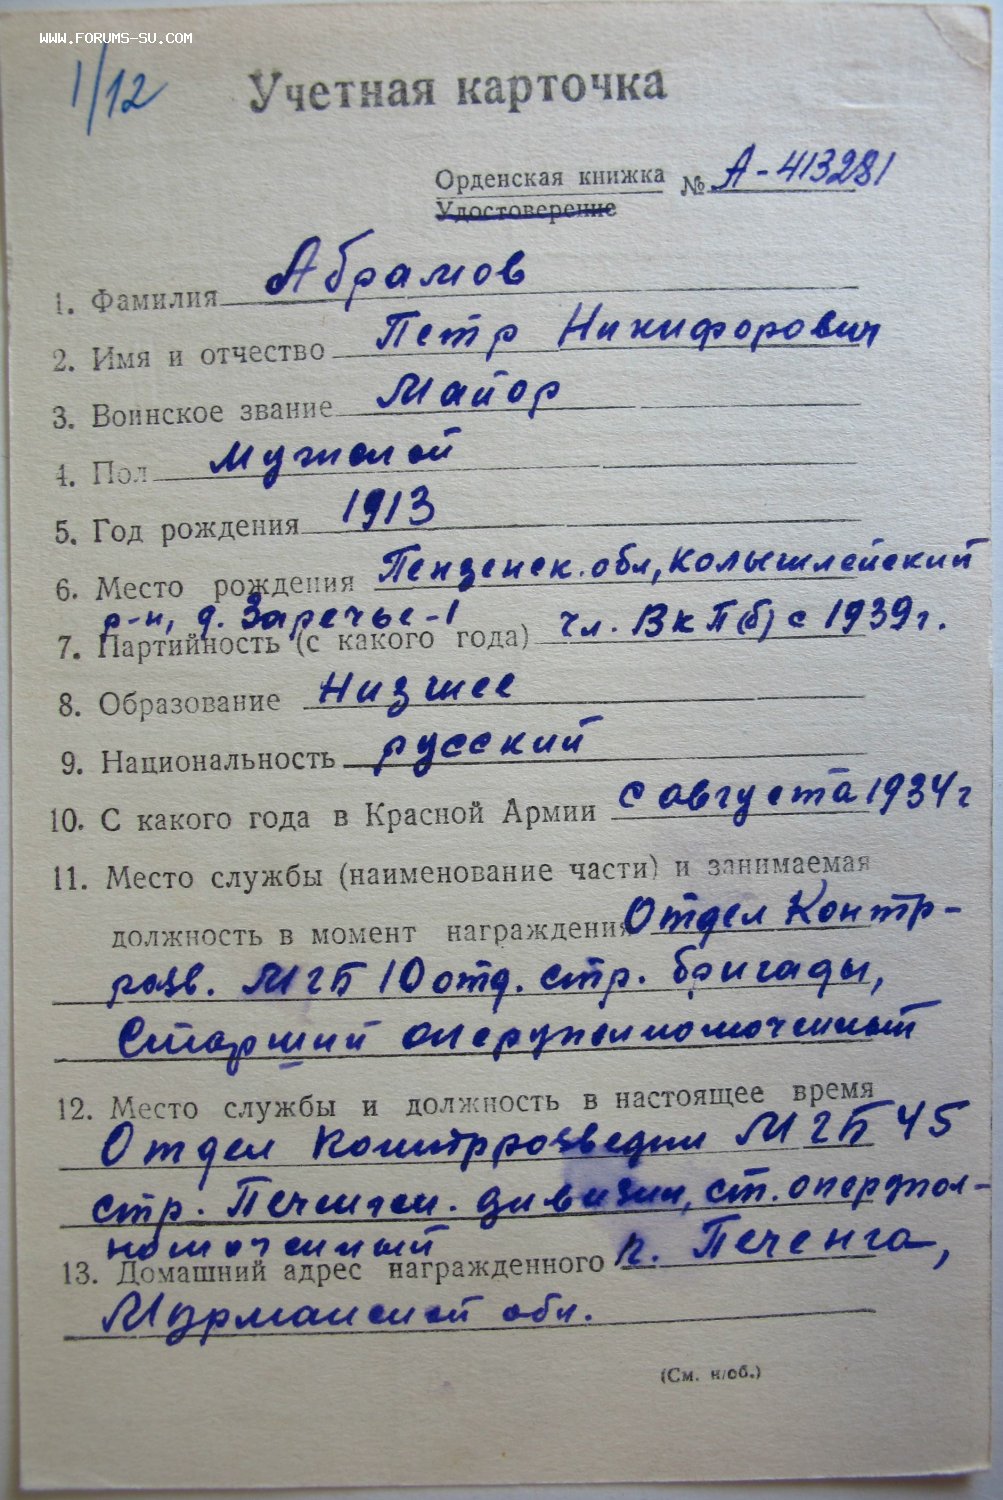 WWW.FORUMS-SU.COM
1/12
Учетная карточка
Орденская книжка № А-413281
Удостоверение
1. Фамилия Абрамов
2. Имя и отчество Петр Никифорович
3. Воинское звание Майор
4. Пол Мужской
5. Год рождения 1913
6. Место рождения Пензенск. обл, Колышлейский
р-н, д. Заречье-1
7. Партийность (с какого года) чл. ВКП(б) с 1939 г.
8. Образование Низшее
9. Национальность русский
10. С какого года в Красной Армии с августа 1934 г
11. Место службы (наименование части) и занимаемая
должность в момент награждения Отдел Контр-
разв. МГБ 10 отд. стр. бригады,
Старший оперуполномоченный
12. Место службы и должность в настоящее время
Отдел Контрразведки МГБ 45
стр. Печенгск. дивизии, ст. оперупол-
номоченный
13. Домашний адрес награжденного п. Печенга,
Мурманской обл.
(См. н/об.)